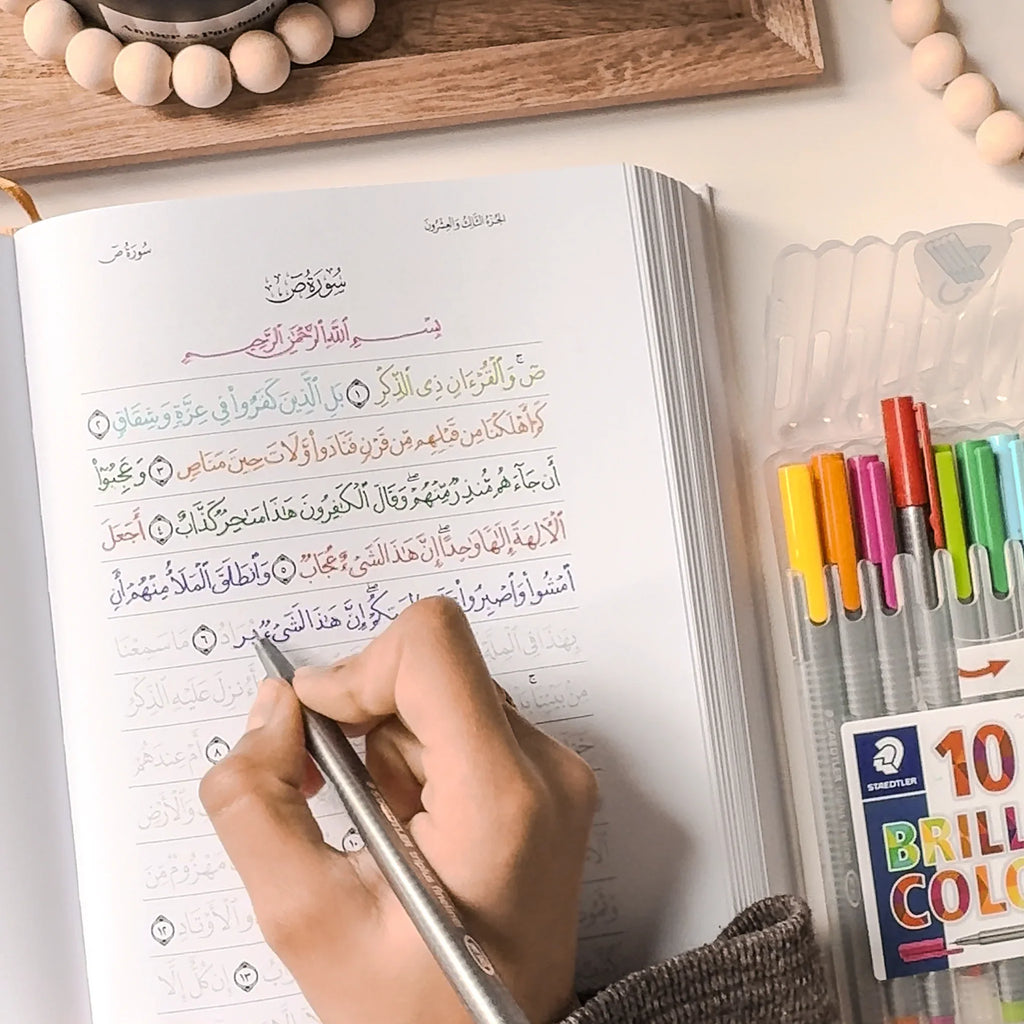 Amber & Patchouli
الجُزءُ الثَّالِثُ وَالعِشْرُونَ
سُورَةُ صٓ
سُورَةُ صٓ
بِسْمِ ٱللَّهِ ٱلرَّحْمَٰنِ ٱلرَّحِيمِ
صٓۚ وَٱلْقُرْءَانِ ذِى ٱلذِّكْرِ ١ بَلِ ٱلَّذِينَ كَفَرُوا۟ فِى عِزَّةٍ وَشِقَاقٍ ٢
كَمْ أَهْلَكْنَا مِن قَبْلِهِم مِّن قَرْنٍ فَنَادَوا۟ وَّلَاتَ حِينَ مَنَاصٍ ٣ وَعَجِبُوٓا۟
أَن جَآءَهُم مُّنذِرٌ مِّنْهُمْۖ وَقَالَ ٱلْكَٰفِرُونَ هَٰذَا سَٰحِرٌ كَذَّابٌ ٤ أَجَعَلَ
ٱلْءَالِهَةَ إِلَٰهًا وَٰحِدًاۖ إِنَّ هَٰذَا لَشَىْءٌ عُجَابٌ ٥ وَٱنطَلَقَ ٱلْمَلَأُ مِنْهُمْ أَنِ
ٱمْشُوا۟ وَٱصْبِرُوا۟ إِنَّ هَٰذَا لَشَىْءٌ
يُرَادُ ٦ مَا سَمِعْنَا
بِهَٰذَا فِى ٱلْمِلَّةِ
أَءُنزِلَ عَلَيْهِ ٱلذِّكْرُ
مِنۢ بَيْنِنَاۚ
٨ أَمْ عِندَهُمْ
وَٱلْأَرْضِ
١٠
مَهْزُومٌ مِّنَ
ٱلْأَوْتَادِ ١٢
١٣ إِن كُلٌّ إِلَّا
STAEDTLER
10
BRILL
COLO